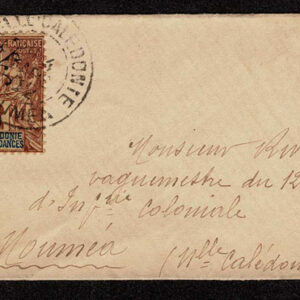 LLE CALÉDONIE
FRANÇAISE
DONIE
DANCES
Monsieur
vaguemestre du 12
d'Infrie Coloniale
Nouméa
(Nlle Calédon